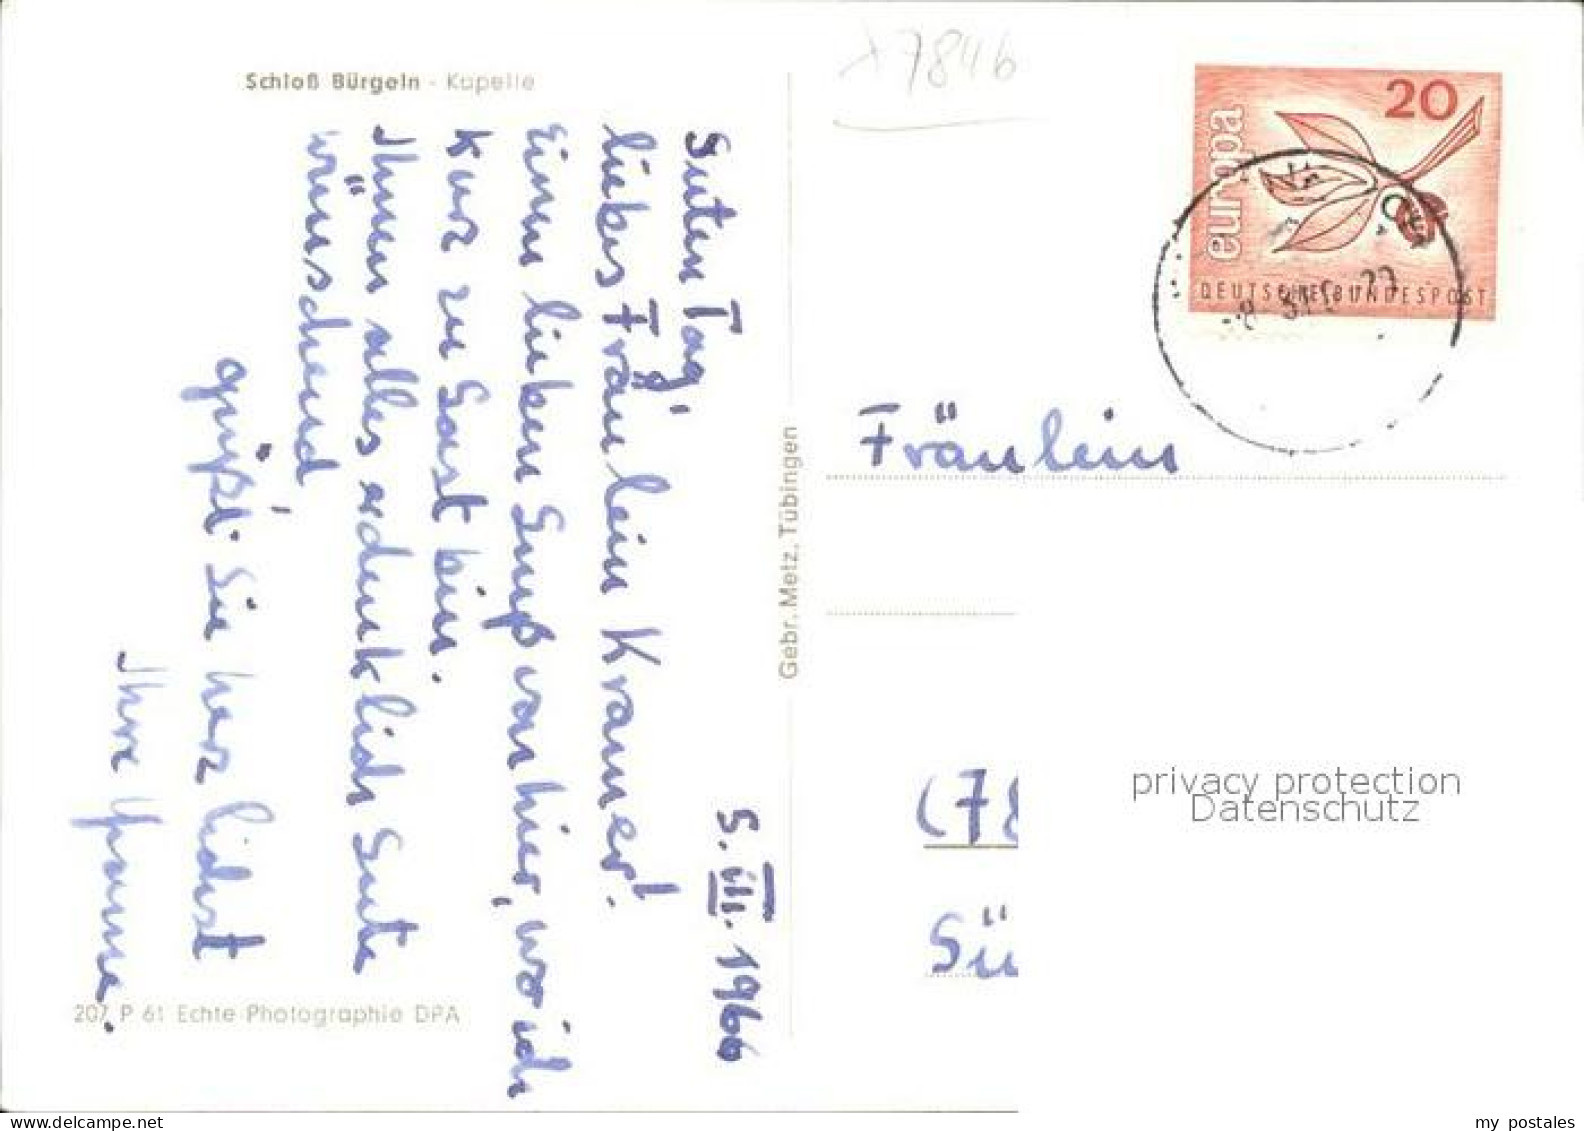 Schloß Bürgeln - Kapelle
5. III. 1966
Guten Tag,
liebes Fräulein Kramer!
Einen lieben Gruß von hier, wo ich
kurz zu Gast bin.
Ihnen alles erdenklich Gute
wünschend
grüßt Sie herzlichst
Ihre
207 P 61 Echte Photographie DPA
Gebr. Metz, Tübingen
7846
20
europa
DEUTSCHE BUNDESPOST
Fräulein
(78
privacy protection
Datenschutz
Sü
my postales
www.delcampe.net